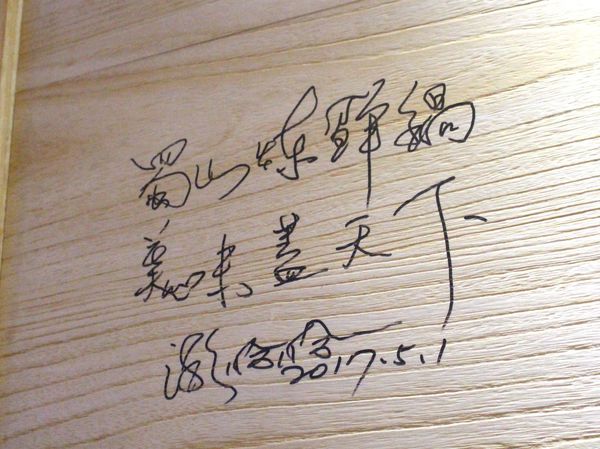 蜀山炼鲜锅
美味盖天下
2017.5.1